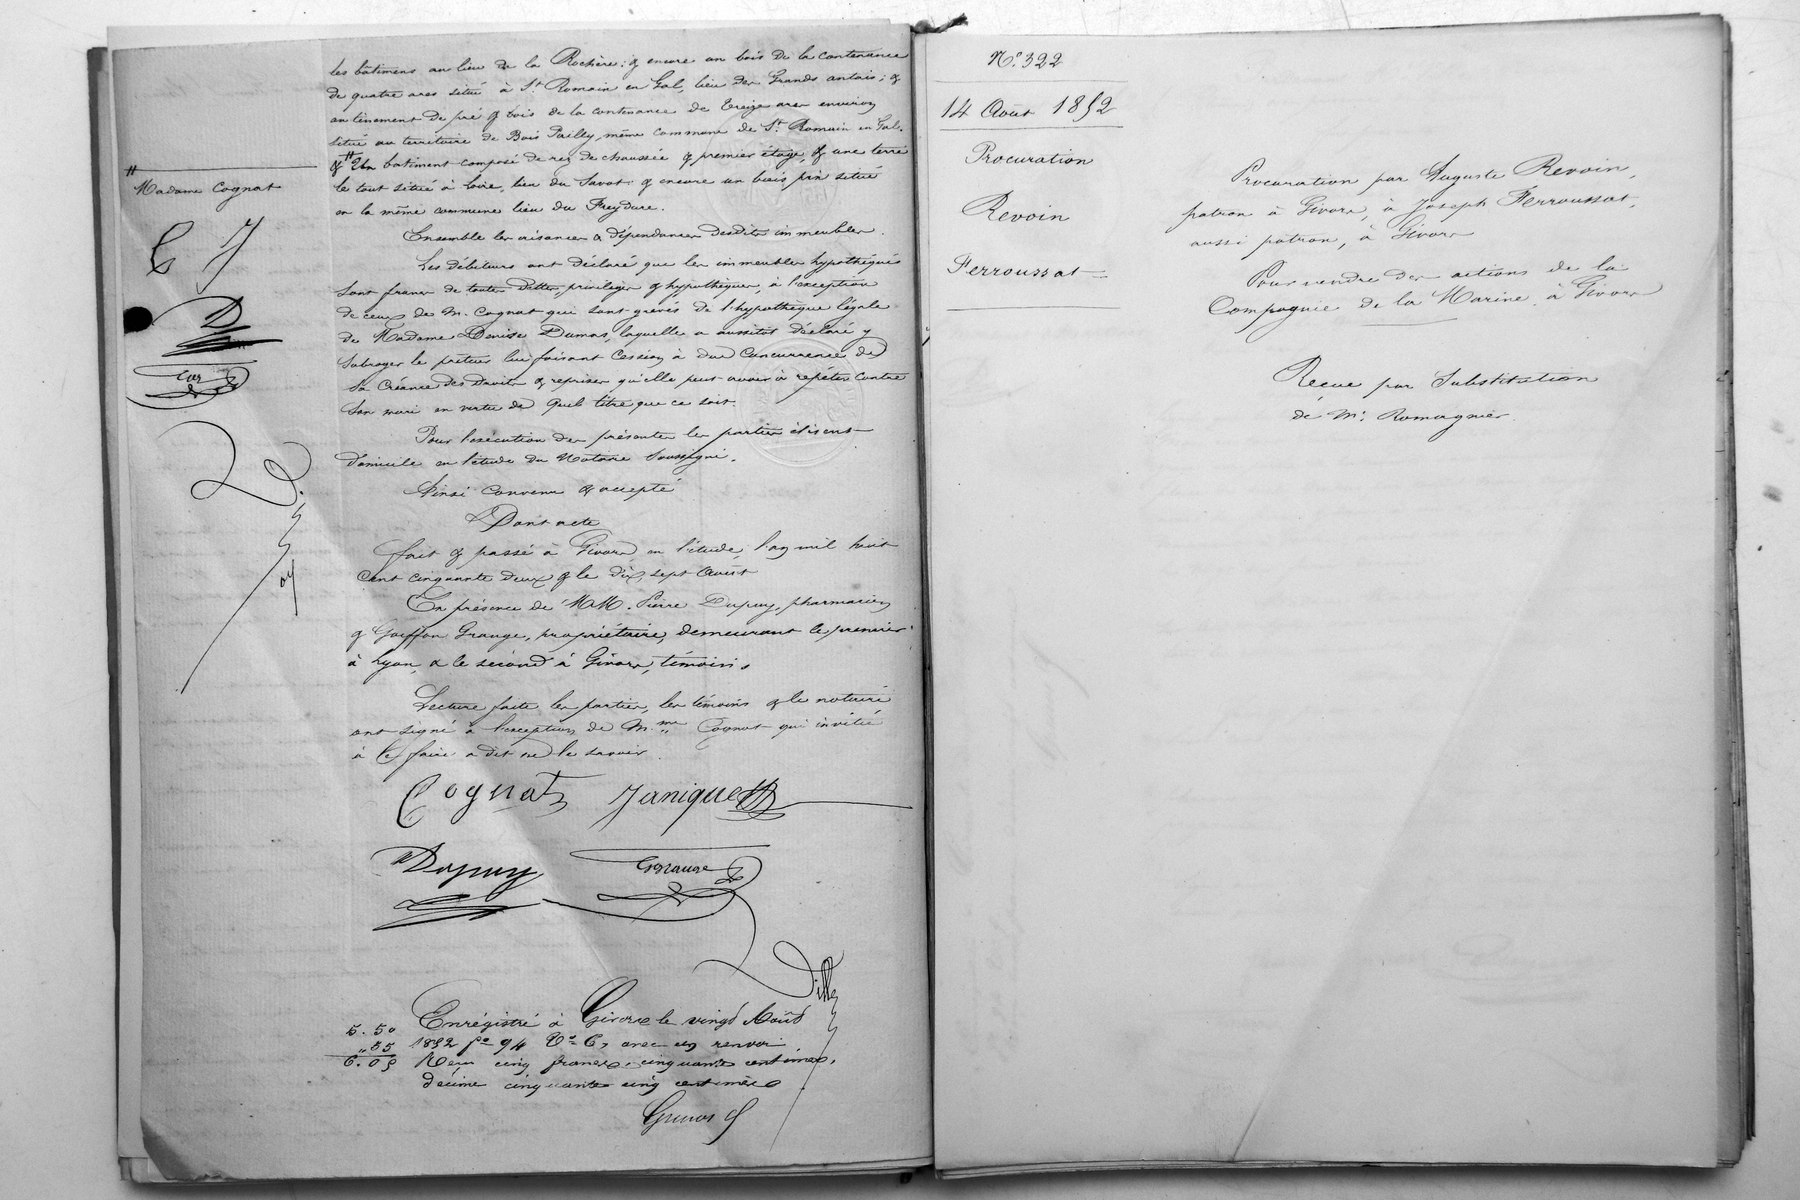 les bâtimens au lieu de la Rochère; & encore un bois de la contenance
de quatre ares situé à St. Romain en Gal, lieu des Grands
un tènement de pré & bois de la contenance de treize ares environ
situé au territoire de Bois Pailley, même commune de St. Romain en Gal.
& # Un batiment composé de rez de chaussée & premier étage, & une terre
le tout situé à Loire, lieu du Savot; & encore un bois pin situé
en la même commune lieu du Freydure.
Ensemble les aisances & dépendances desdits immeubles.
Les débiteurs ont déclaré que les immeubles hypothéqués
sont francs de toutes dettes, privilèges & hypothèques, à l'exception
de ceux de M. Cognat qui sont grevés de l'hypothèque légale
de Madame Denise Dumas, laquelle a aussitôt déclaré y
subroger le prêteur lui faisant Cession à due Concurrence de
sa Créance des droits & reprises qu'elle peut avoir à répéter contre
son mari en vertu de quel titre que ce soit.
Pour l'exécution des présentes les parties élisent
domicile en l'étude du Notaire soussigné.
Ainsi convenu & accepté
Dont acte
fait & passé à Givors, en l'étude, l'an mil huit
cent cinquante deux & le dix sept Août
En présence de MM. Pierre Dupuy, pharmacien
& Goiffon Grange, propriétaire, demeurant le premier
à Lyon, & le second à Givors, témoins
Lecture faite les parties, les témoins & le notaire
ont signé à l'exception de Mme Cognat qui invitée
à le faire a dit ne le savoir.
Cognat Janiquet
Dupuy Grange
Enrégistré à Givors le vingt Août
1852 fo 94 Vo C, avec un renvoi
Reçu cinq francs, cinquante centimes,
décime cinquante cinq centimes
5. 50
" 55
6. 05
#
Madame Cognat
C J
D
N° 322
14 Août 1852
Procuration
Revoin
Ferroussat
Procuration par Auguste Revoin,
patron à Givors, à Joseph Ferroussat,
aussi patron, à Givors
Pour vendre des actions de la
Compagnie de la Marine, à Givors
Reçue par Substitution
de Me. Romagnier